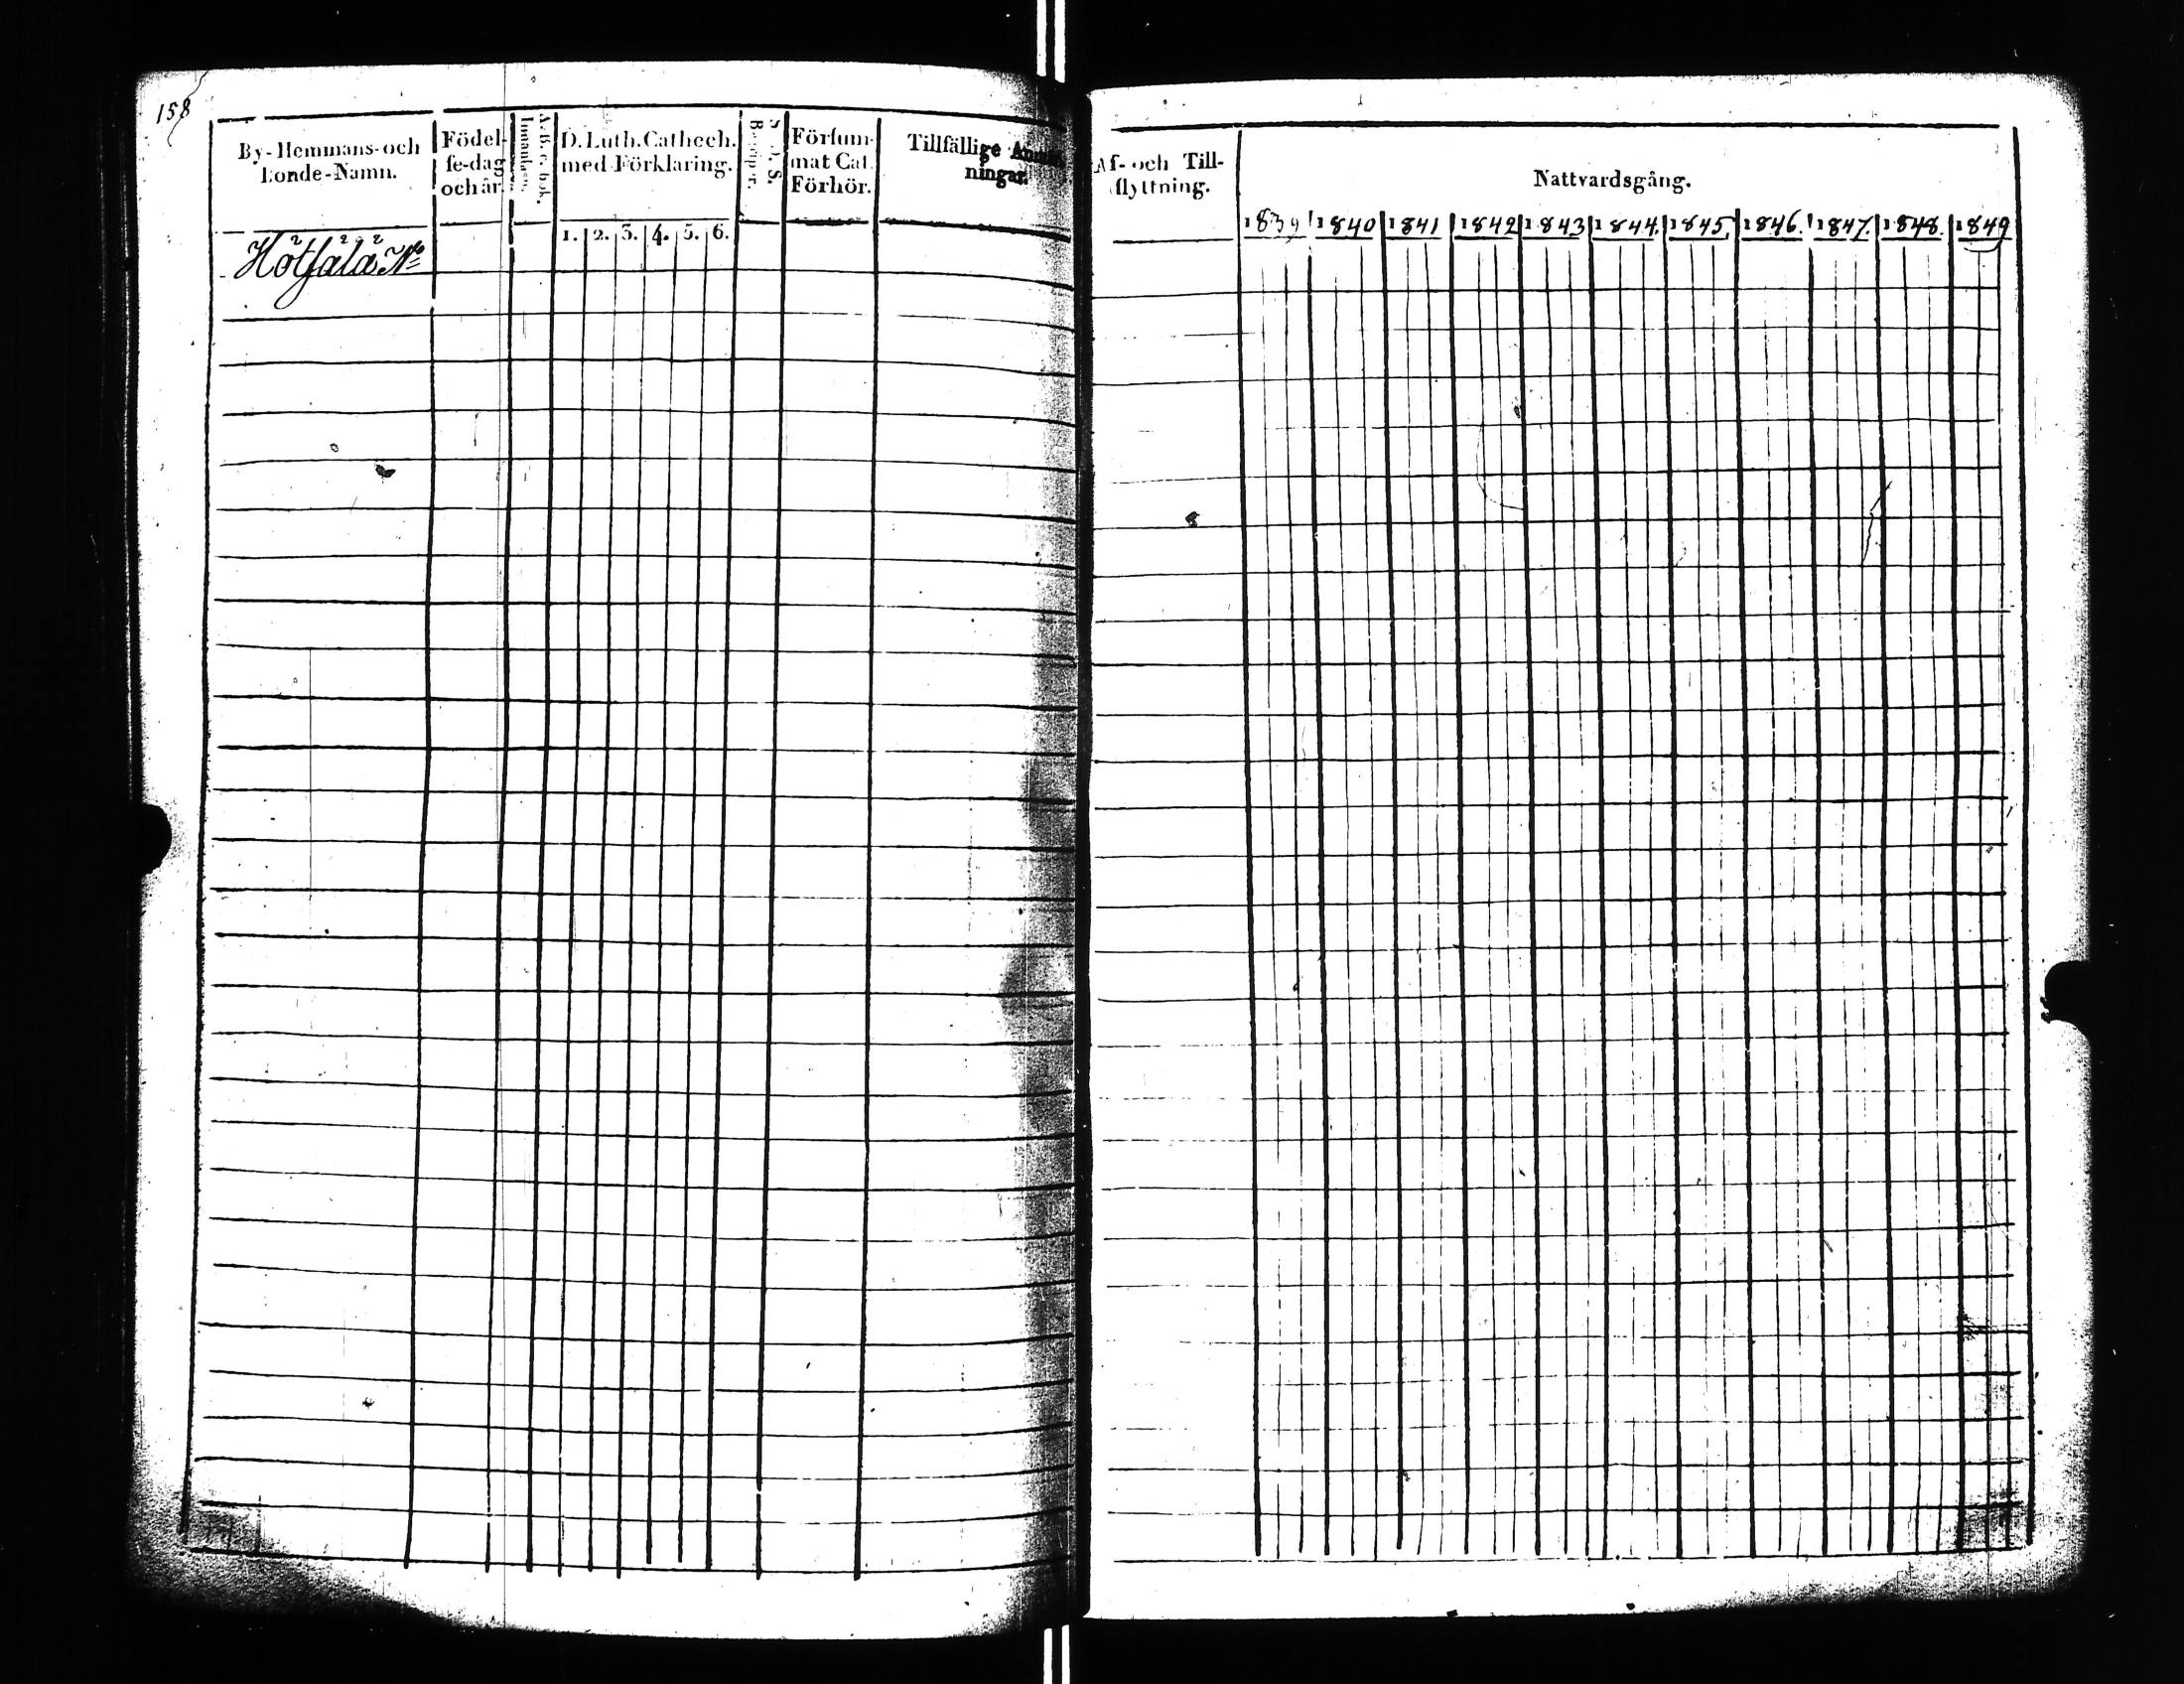 158
By-Hemmans- och Bonde-Namn.
Födel-se-dag och år.
A. B. C. bok.
Innanläsn.
D. Luth. Cathech. med Förklaring.
1. 2. 3. 4. 5. 6.
D. S.
Försum-mat Cat. Förhör.
Tillfällige Anmärkningar.
Af- och Till-flyttning.
Nattvardsgång.
1839 1840 1841 1842 1843 1844. 1845. 1846. 1847. 1848. 1849